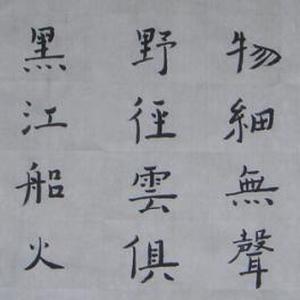 物細無聲
野徑雲俱
黑江船火